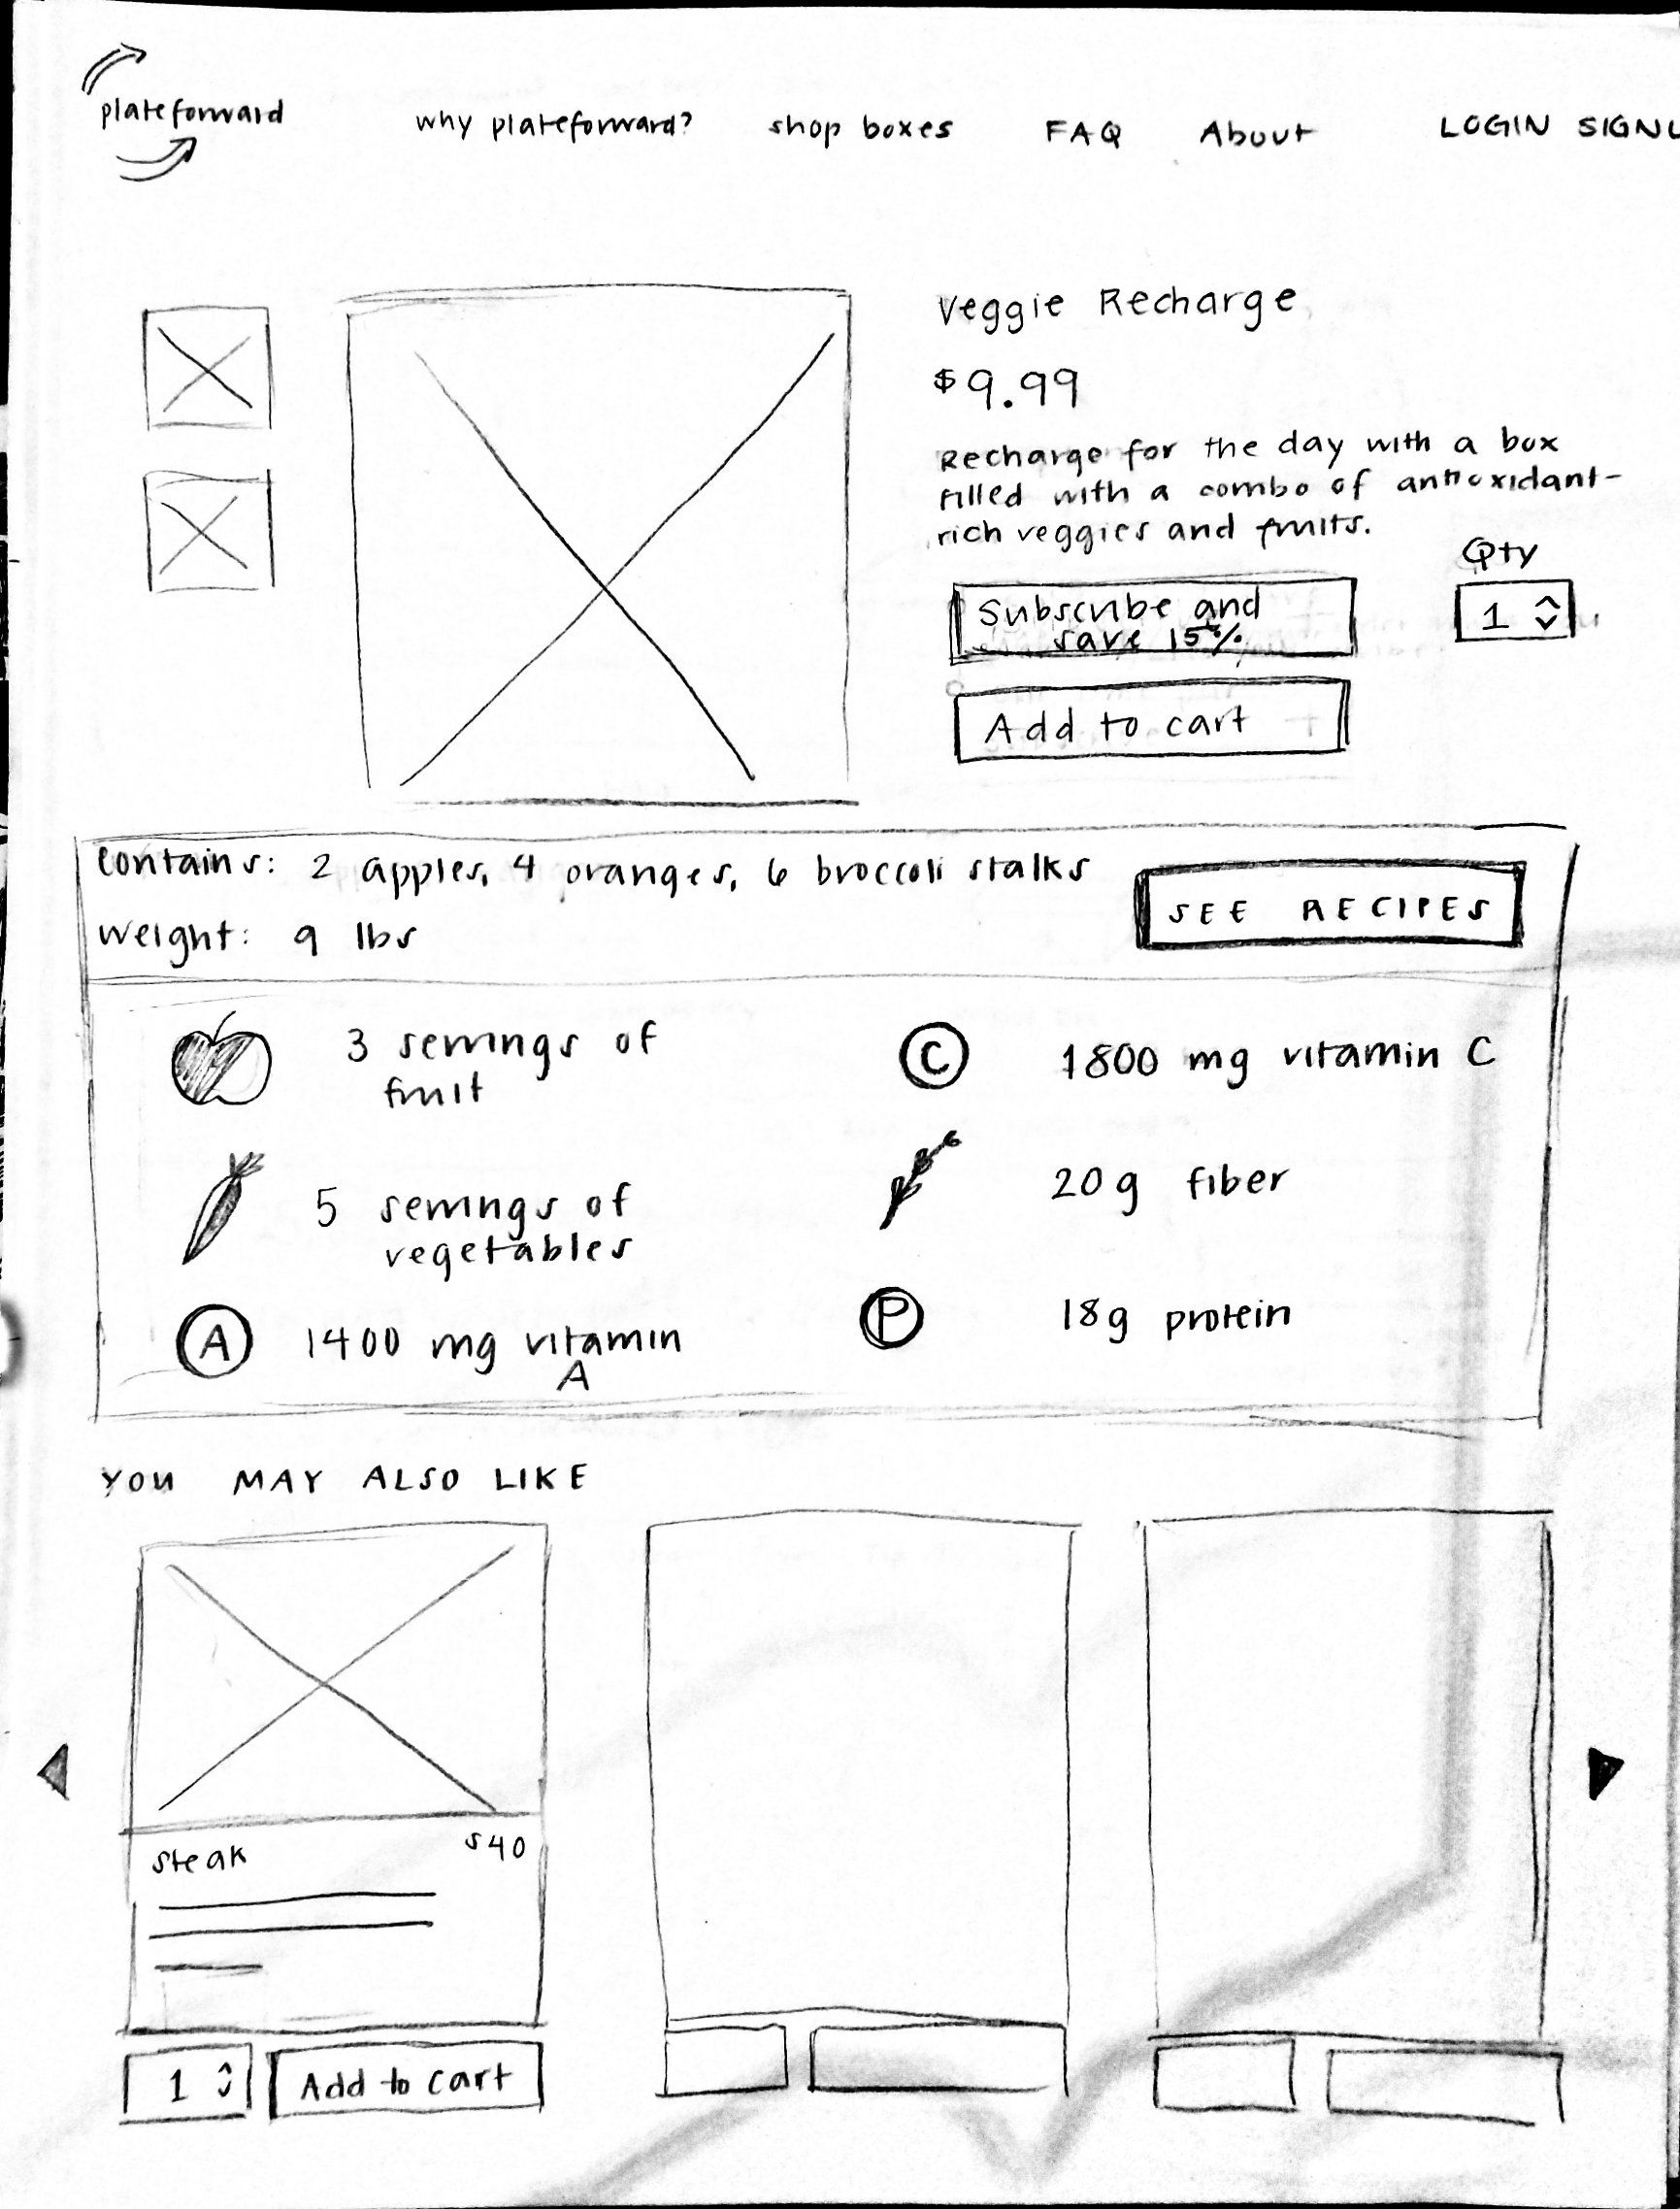 plateforward
why plateforward? shop boxes FAQ About LOGIN SIGNU
Veggie Recharge
$9.99
Recharge for the day with a box
filled with a combo of antioxidant-
rich veggies and fruits.
Qty
Subscribe and
save 15%
1
Add to cart
contains: 2 apples, 4 oranges, 6 broccoli stalks
weight: 9 lbs
SEE RECIPES
3 servings of
fruit
C 1800 mg vitamin C
5 servings of
vegetables
20g fiber
A 1400 mg vitamin
A
P 18g protein
YOU MAY ALSO LIKE
steak $40
1 Add to cart